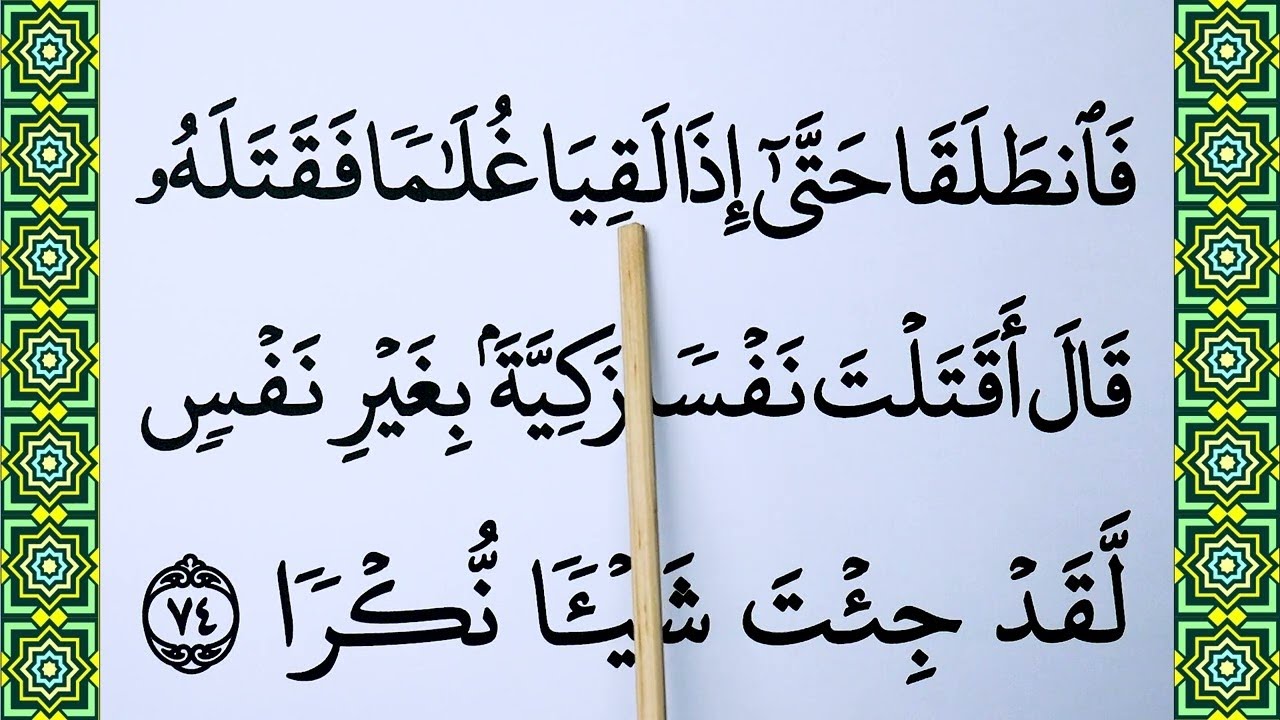 فَٱنطَلَقَا حَتَّىٰٓ إِذَا لَقِيَا غُلَٰمٗا فَقَتَلَهُۥ
قَالَ أَقَتَلۡتَ نَفۡسٗا زَكِيَّةَۢ بِغَيۡرِ نَفۡسٖ
لَّقَدۡ جِئۡتَ شَيۡـٔٗا نُّكۡرٗا ٧٤